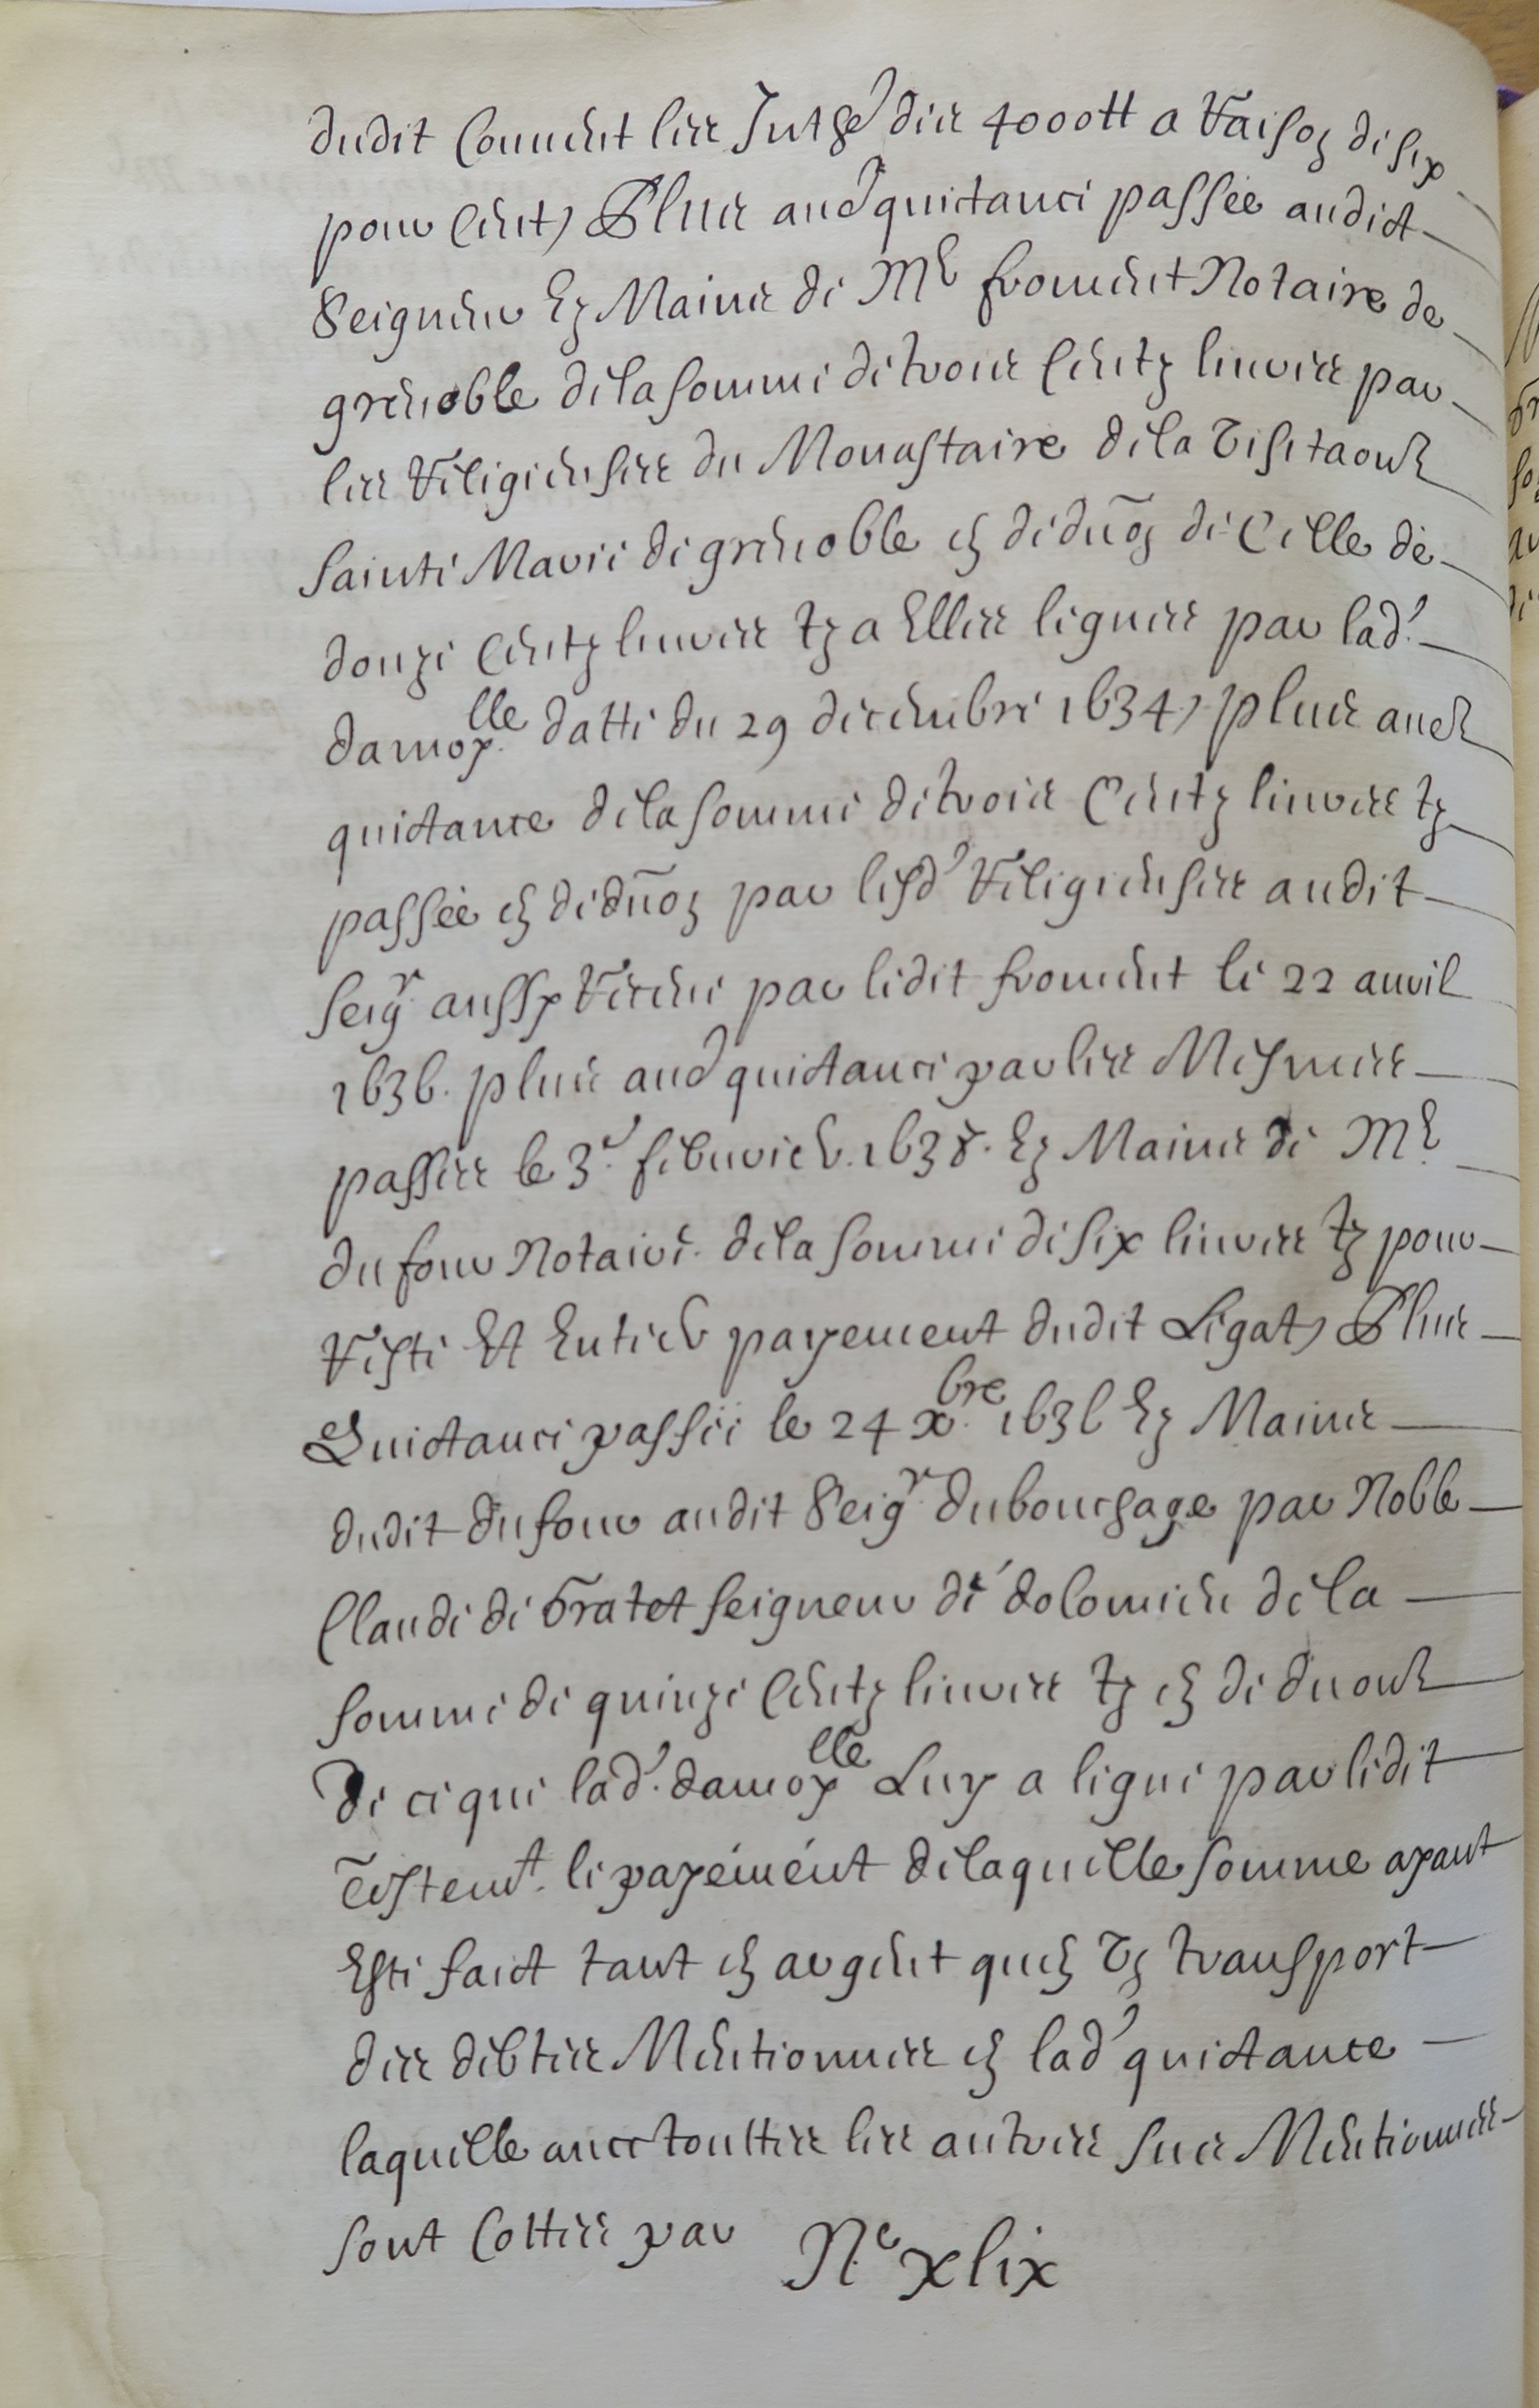 dudit Couuent les Jntēd des 4000tt a Raison de six
pour Cent, Plus aud quictance passée audict
Seigneur Es Mains de Me froment Notaire de
grenoble de la somme de trois Centz liures par
les Religieuses du Monastaire de la Visitaon
Sainte Marie de grenoble en deduōn de Celle de
douze Centz liures tz a Elles legues par lad.
damoylle datte du 29 decembre 1634, plus au
quictance de la somme de trois Centz liures tz
passée en deduōn par lesd Religieuses audit
Seigr aussy Receue par ledit froment le 22 auril
1636. plus aud quictance par les Mesmes
passee le 3e. feburier. 1638. Es Mains de Me
du four Notaire. de la somme de six liures tz pour
Reste Et Entier payement dudit Legat, Plus
Quictance passée le 24 xbre. 1636 Es Mains
dudit du four audit Seigr du bourgage par Noble
Claude de Gratet seigneur de dolomieu de la
somme de quinze Centz liures tz en deduon
de ce que lad. damoylle Luy a legue par ledit
Testemt. le payement de laquelle somme ayant
Este faict tant en argent quen Un transport
des debtes Mentionnes en lad quictance
laquelle auec touttes les autres sus Mentionnes
sont Cottes par Ne xlix